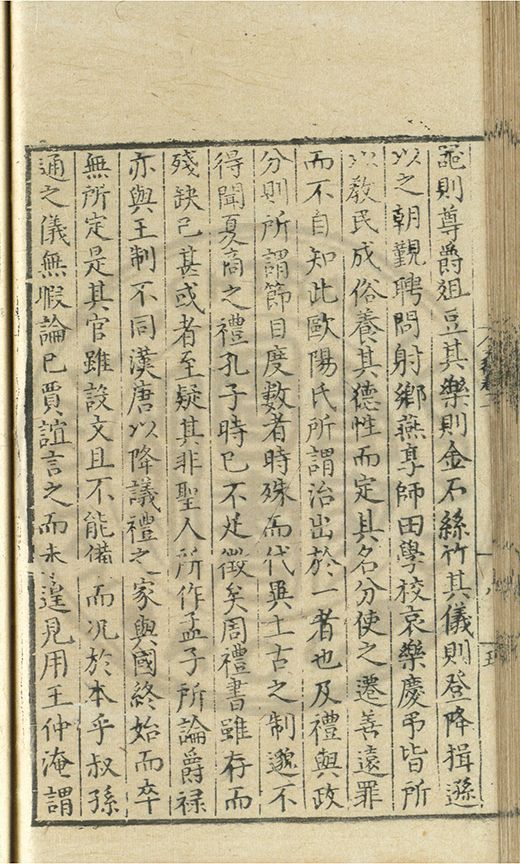 則尊爵俎豆其樂則金石絲竹其儀則登降揖遜
以之朝覲聘問射鄉燕享師田學校哀樂慶弔皆所
以敎民成俗養其德性而定其名分使之遷善遠罪
而不自知此歐陽氏所謂治出於一者也及禮與政
分則所謂節目度數者時殊而代異上古之制邈不
得聞夏商之禮孔子時已不足徵矣周禮書雖存而
殘缺已甚或者至疑其非聖人所作孟子所論爵祿
亦與王制不同漢唐以降議禮之家與國終始而卒
無所定是其官雖設文且不能備而况於本乎叔孫
通之儀無暇論已賈誼言之而未遑見用王仲淹謂